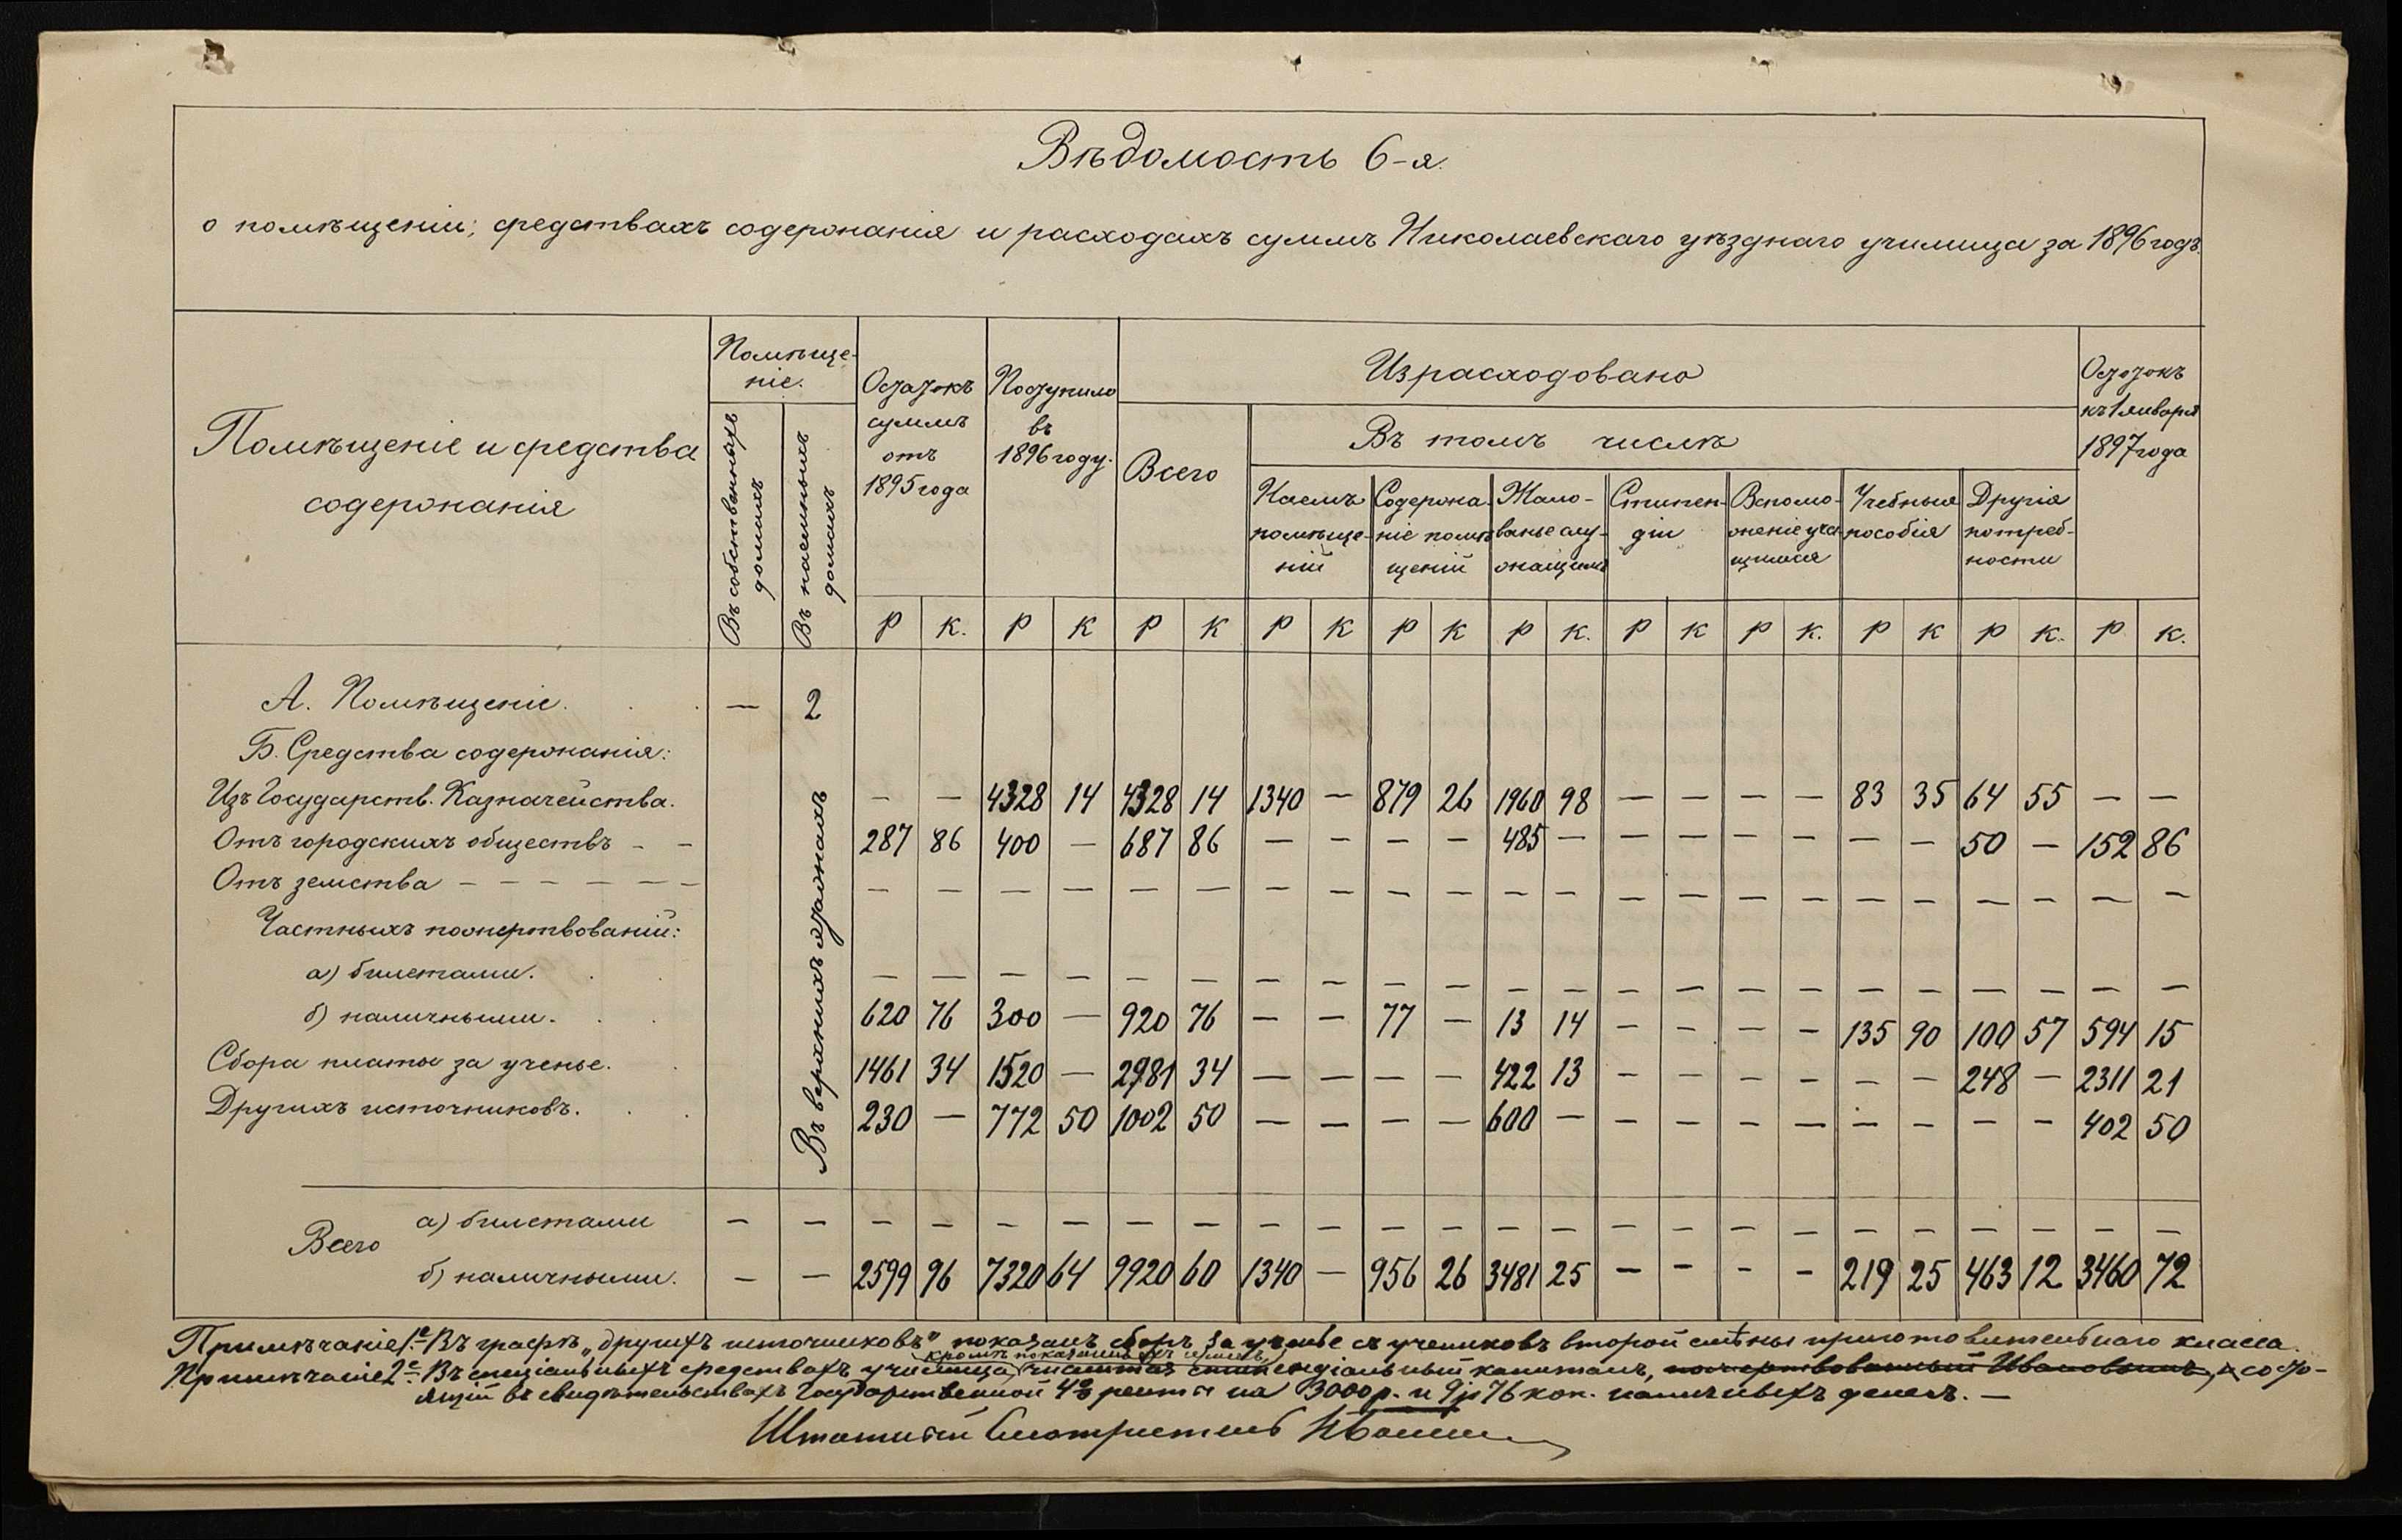 Вѣдомость 6-я.
о помѣщеніи, средствахъ содержанія и расходахъ суммъ Николаевскаго уѣзднаго училища за 1896 годъ.
Помѣщеніе и средства содержанія
Помѣще-
ніе.
Въ собственныхъ домахъ
Въ наемныхъ домахъ
Остатокъ суммъ отъ 1895 года
Поступило въ 1896 году.
Израсходовано
Всего
Въ томъ числѣ
Наемъ помѣще-
ній
Содержа-
ніе помѣ-
щеній
Жало-
ванье слу-
жащимъ
Стипен-
діи
Вспомо-
женіе уча-
щимся
Учебныя пособія
Другія потреб-
ности
Остатокъ къ 1 января 1897 года
Р К. Р К Р К Р К Р К Р К. Р К Р К. Р К Р К. Р К.
А. Помѣщеніе. . . — 2
Б. Средства содержанія:
Въ верхнихъ этажахъ
Изъ Государств. Казначейства. — — 4328 14 4328 14 1340 — 879 26 1960 98 — — — — 83 35 64 55 — —
Отъ городскихъ обществъ - - 287 86 400 — 687 86 — — — — 485 — — — — — — — 50 — 152 86
Отъ земства - - - - - - — — — — — — — — — — — — — — — — — — — — — —
Частныхъ пожертвованій:
а) билетами. . . — — — — — — — — — — — — — — — — — — — — — —
б) наличными. . . 620 76 300 — 920 76 — — 77 — 13 14 — — — — 135 90 100 57 594 15
Сбора платы за ученье. . 1461 34 1520 — 2981 34 — — — — 422 13 — — — — — — 248 — 2311 21
Другихъ источниковъ. . . 230 — 772 50 1002 50 — — — — 600 — — — — — — — — — 402 50
Всего
а) билетами — — — — — — — — — — — — — — — — — — — — — — — —
б) наличными. — — 2599 96 7320 64 9920 60 1340 — 956 26 3481 25 — — — — 219 25 463 12 3460 72
Примѣчаніе 1е Въ графѣ „другихъ источниковъ" показанъ сборъ за ученье съ учениковъ второй смѣны приготовительнаго класса.
кромѣ показанныхъ
Примѣчаніе 2е Въ спеціальныхъ средствахъ училища капиталъ, пожертвованный Ивановымъ, состо-
ящій въ свидѣтельствахъ Государственной 4% ренты на 3000 р. и 9 р 76 коп. наличныхъ денегъ. —
Штатный Смотритель